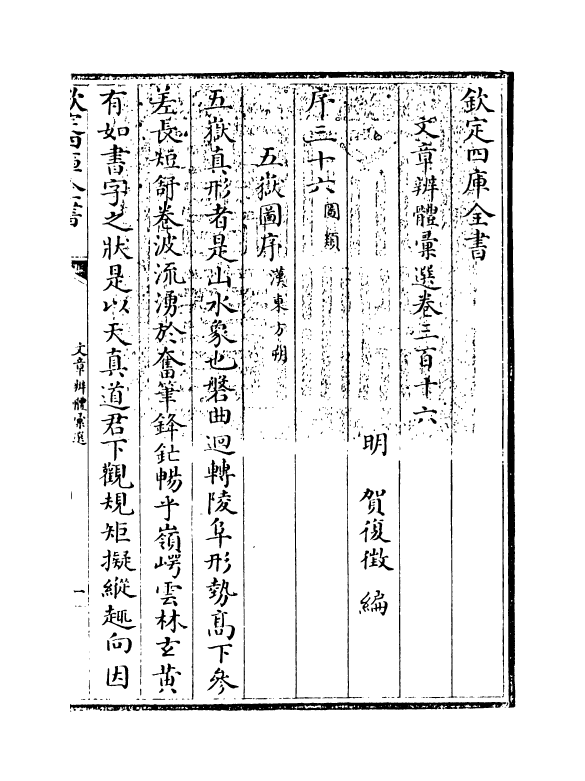 欽定四庫全書
文章辨體彚選卷三百十六
明 賀復徵 編
序三十六圖類
五嶽圖序漢東方朔
五嶽真形者是山水象也磐曲迴轉陵阜形勢高下參
差長短舒卷波流湧於奮筆鋒鋩暢乎嶺崿雲林玄黄
有如書字之狀是以天真道君下觀規矩擬縱趣向因
欽定四庫全書
文章辨體彚選
一